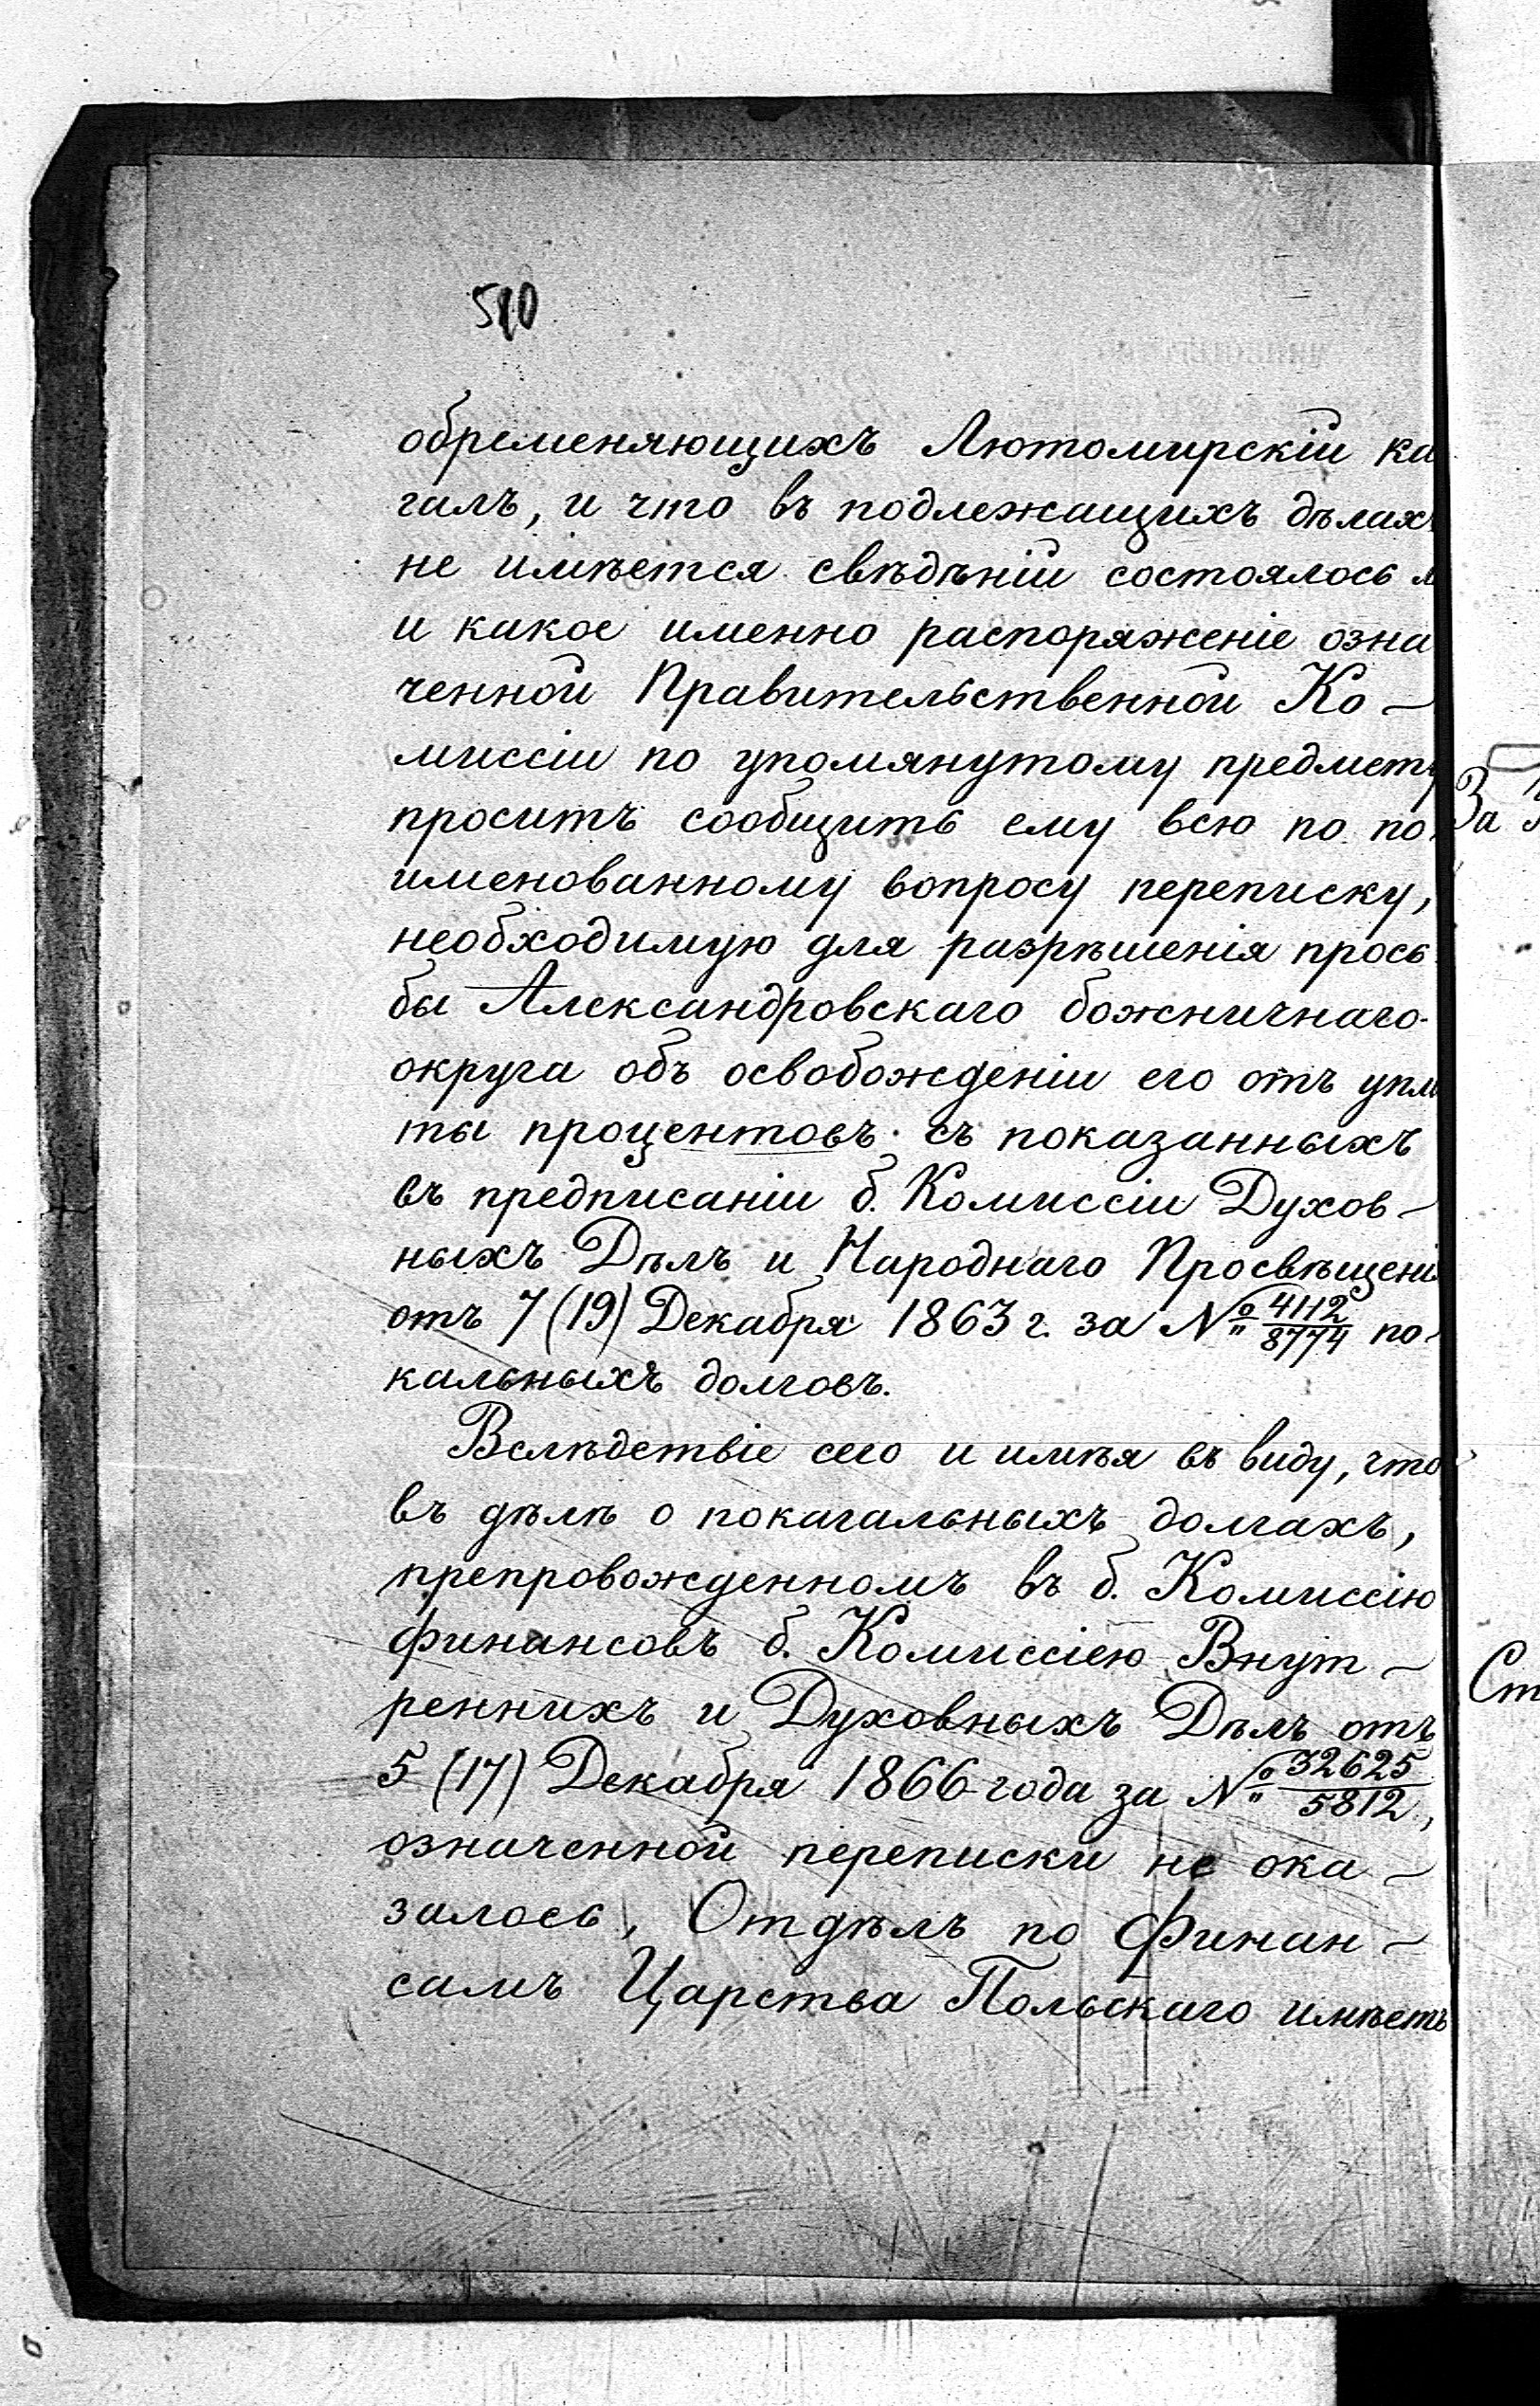 510
обременяющихъ Лютомирскій ка
галъ, и что въ подлежащихъ дѣлахъ
не имѣется свѣдѣній состоялось л
и какое именно распоряженіе озна
ченной Правительственной Ко-
миссіи по упомянутому предмету
проситъ сообщить ему всю по по
именованному вопросу переписку,
необходимую для разрѣшенія прось
бы Александровскаго божничнаго
округа объ освобожденіи его отъ упла
ты процентовъ съ показанныхъ
въ предписаніи б. Комиссіи Духов-
ныхъ Дѣлъ и Народнаго Просвѣщенія
отъ 7 (19) Декабря 1863 г. за № 4112/8774 по-
кальныхъ долговъ.
Вслѣдствіе сего и имѣя въ виду, что
въ дѣлѣ о покагальныхъ долгахъ,
препровожденномъ въ б. Комиссію
финансовъ б. Комиссіею Внут-
реннихъ и Духовныхъ Дѣлъ отъ
5 (17) Декабря 1866 года за № 32625/5812,
означенной переписки не ока-
залось, Отдѣлъ по Финан-
самъ Царства Польскаго имѣетъ
За
Ст